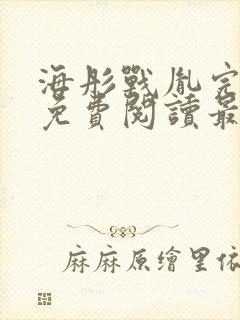 海彤戰胤完
免費閱讀最
麻麻原繪里依